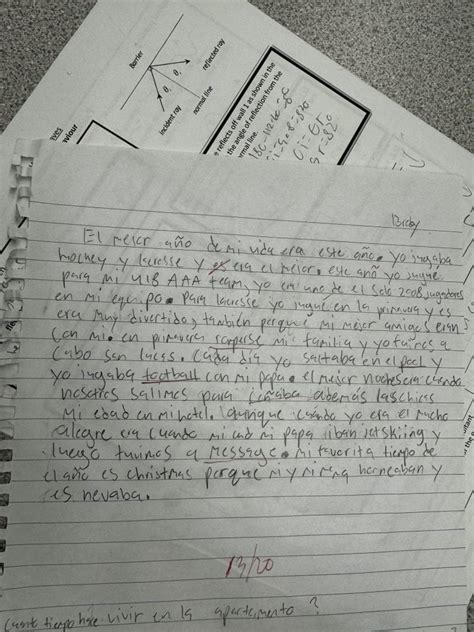 Barrier
reflected ray
θr
θi
normal line
incident ray
reflects off wall 1 as shown in the
the angle of reflection from the
normal line.
Brody
El mejor año de mi vida era este año. yo jugaba
hockey y lacrosse y es era el mejor. este año yo jugué
para mi U18 AAA team, yo era uno de el solo 2008 jugadores
en mi equipo. Para lacrosse yo jugué en la primavera y es
era muy divertido, también porque mi mejor amigos eran
con mi. en primavera mi familia y yo fuimos a
Cabo san lucas. Cada día yo saltaba en el pool y
yo jugaba football con mi papa. el mejor noches era cuando
nosotros salimos para además las chicas
mi edad en mi hotel. cuando yo era el mucho
alegre era cuando mi mi papa iban jetskiing y
luego tuvimos a message. mi favorita tiempo de
el año es christmas porque my horneaban y
es nevaba.
13/20
tiempo hace vivir en la apartamento ?